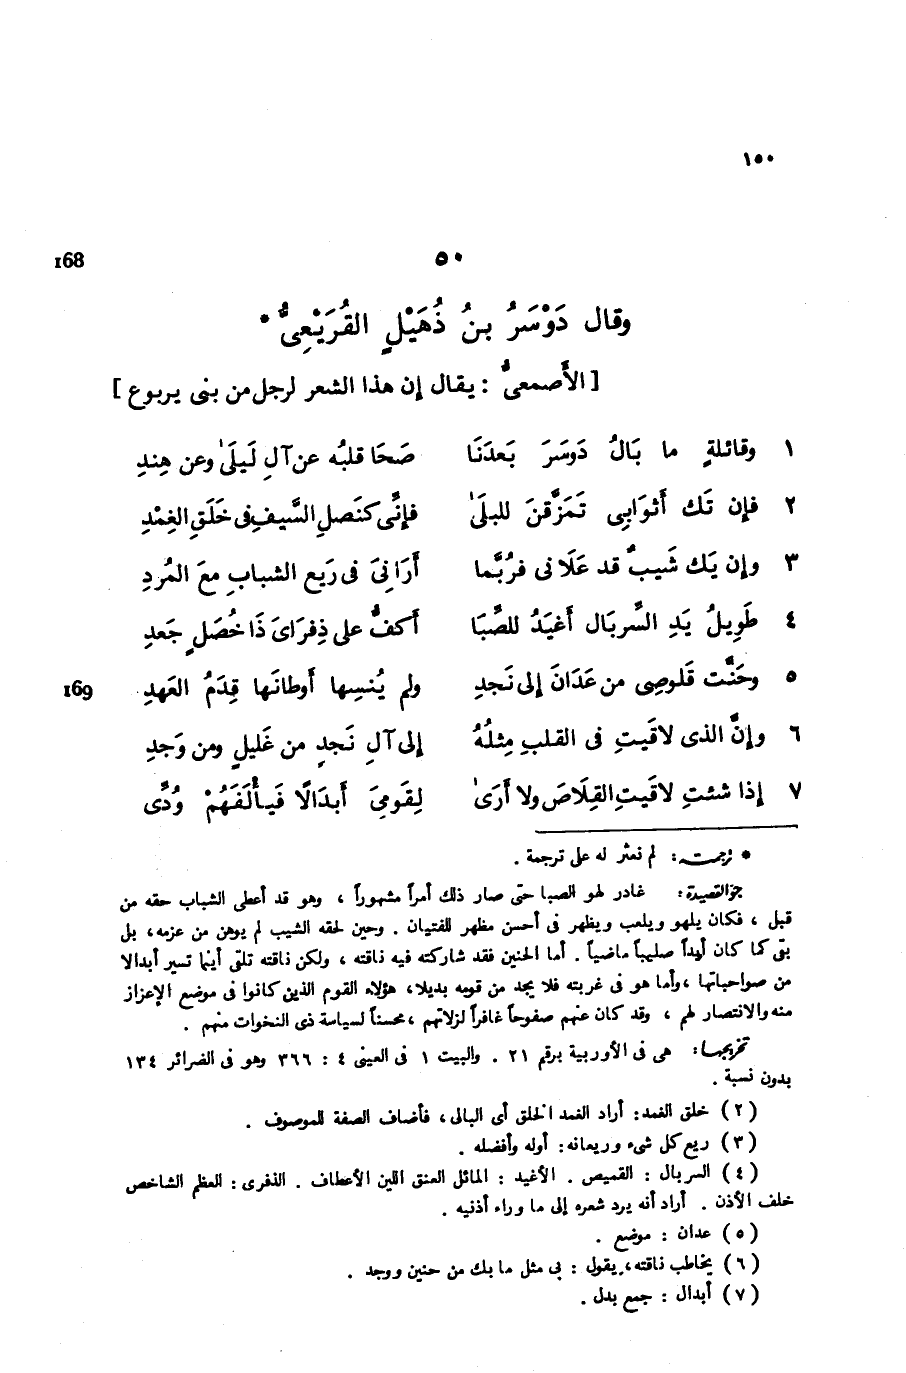 ١٥٠
168
٥٠
وقال دَوْسَرُ بنُ ذُهَيْلٍ القُرَيْعِىُّ *
[ الأَصمعىُّ : يقال إن هذا الشعر لرجل من بنى يربوع ]
١ وقائلةٍ ما بَالُ دَوسَرَ بَعدَنَا صَحَا قلبُه عن آلِ لَيلَىٰ وعن هِندِ
٢ فإن تَك أَثوَابِى تَمَزَّقنَ للبلَىٰ فإنِّى كنَصلِ السَّيفِ فى خَلَقِ الغِمْدِ
٣ وإن يَك شَيبٌ قد عَلَانى فرُبَّما أَرَانِىَ فى رَيعِ الشبابِ معَ المُردِ
٤ طَوِيلُ يَدِ السِّربَالِ أَغيَدُ للصِّبَا أَكفُّ على ذِفرَاىَ ذَا خُصَلٍ جَعدِ
٥ وحَنَّت قَلوصِى من عَدَانَ إلى نَجدِ ولم يُنسِها أوطانَها قِدَمُ العَهدِ
169
٦ وإنَّ الذى لاقَيتِ فى القلبِ مِثلُهُ إلى آلِ نَجدٍ من غَليلٍ ومن وَجدِ
٧ إذا شئتِ لاقَيتِ القِلَاصَ ولا أَرَىٰ لِقَومِىَ أَبدَالًا فَيأْلَفَهُمْ وُدِّى
* ترجمته: لم نعثر له على ترجمة .
جوّ القصيدة: غادر لهو الصبا حتى صار ذلك أمراً مشهوراً ، وهو قد أعطى الشباب حقه من
قبل ، فكان يلهو ويلعب ويظهر فى أحسن مظهر للفتيان . وحين لحقه الشيب لم يوهن من عزمه، بل
بقى كما كان أيداً صليباً ماضياً . أما الحنين فقد شاركته فيه ناقته ، ولكن ناقته تلقى أينما تسير أبدالا
من صواحباتها ، وأما هو فى غربته فلا يجد من قومه بديلا، هؤلاء القوم الذين كانوا فى موضع الإعزاز
منه والانتصار لهم ، وقد كان عنهم صفوحاً غافراً لزلاتهم ، محسناً لسياسة ذى النخوات منهم .
تخريجها: هى فى الأوربية برقم ٢١ . والبيت ١ فى العينى ٤ : ٣٦٦ وهو فى الضرائر ١٣٤
بدون نسبة .
( ٢ ) خلق الغمد: أراد الغمد الخلق أى البالى ، فأضاف الصفة للموصوف .
( ٣ ) ريع كل شىء وريعانه: أوله وأفضله .
( ٤ ) السربال : القميص . الأغيد : المائل العنق اللين الأعطاف . الذفرى : العظم الشاخص
خلف الأذن . أراد أنه يرد شعره إلى ما وراء أذنيه .
( ٥ ) عدان : موضع .
( ٦ ) يخاطب ناقته ، يقول : بى مثل ما بك من حنين ووجد .
( ٧ ) أبدال : جمع بدل .